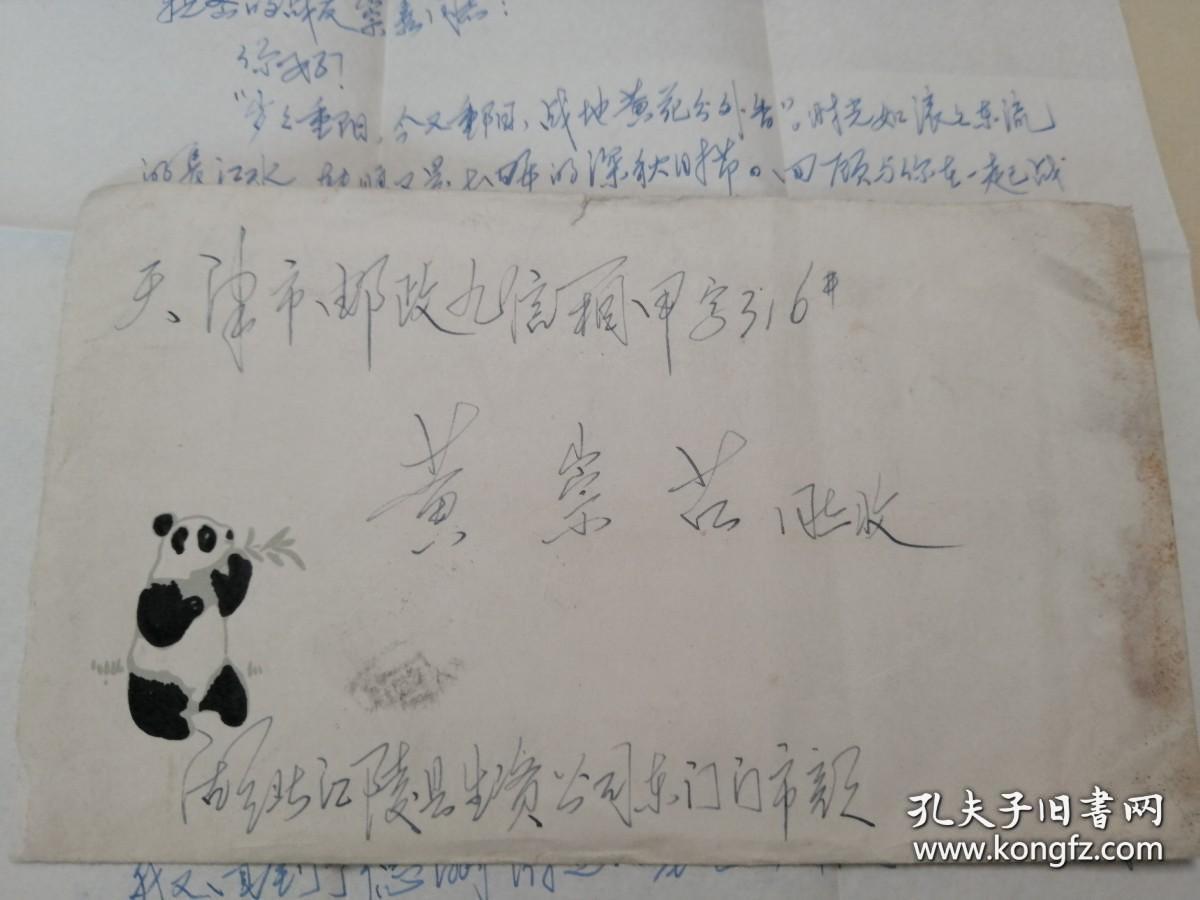 你好!
"岁岁重阳,今又重阳,战地黄花分外香"。时光如滚滚东流
的长江水 又是 的深秋时节。回顾与你在一起战
天津市邮政九信箱甲字316#
黄崇 同志收
湖北江陵县生资公司东门门市部
我又
孔夫子旧书网
www.kongfz.com